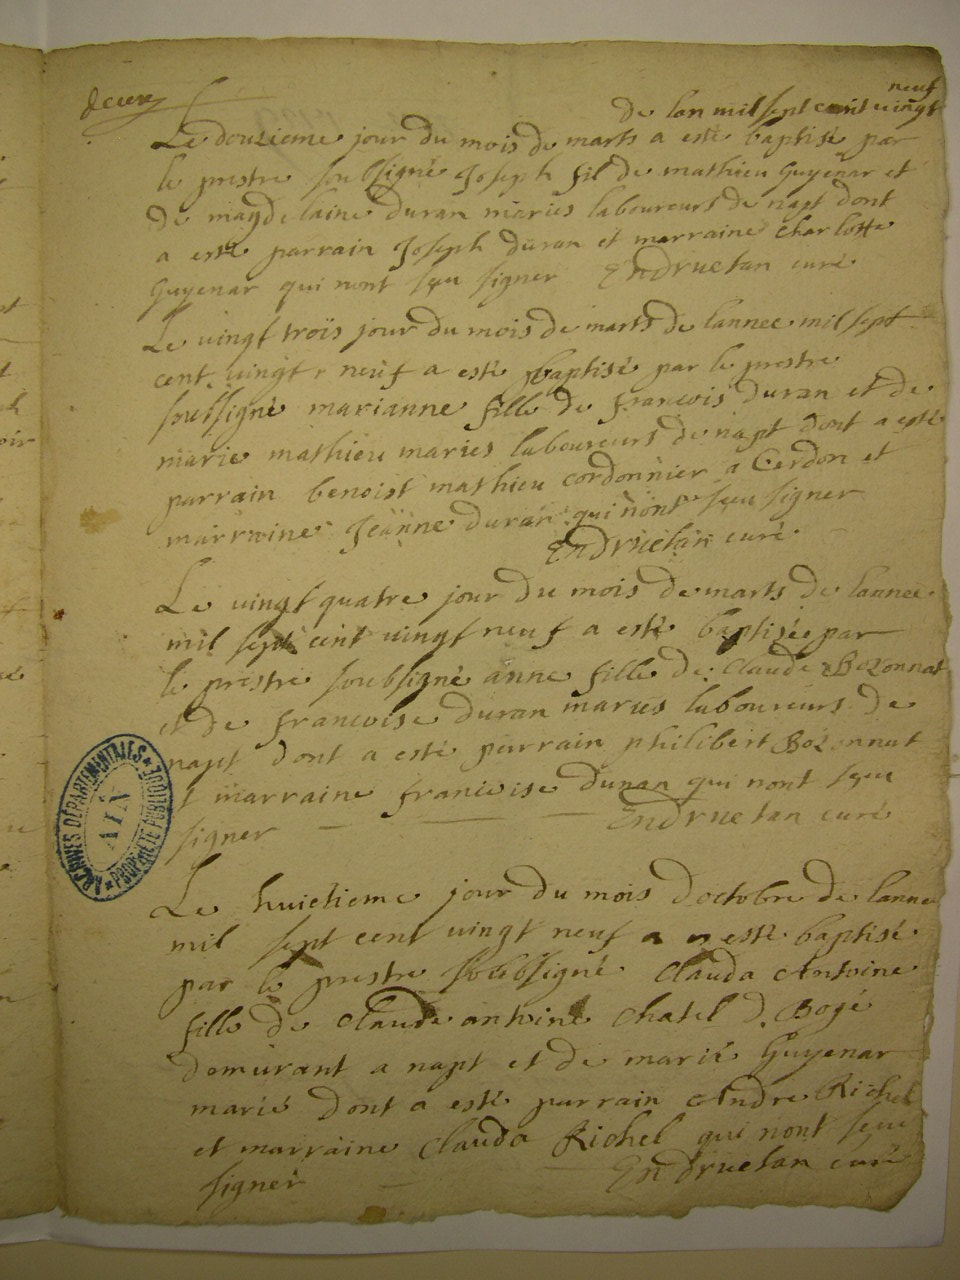 de lan mil sept cent vingt neuf
Le douzieme jour du mois de marts a esté baptisé par
le prestre soubsigné Joseph fil de mathieu Guyenar et
de magdelaine duran mariés laboureurs de napt dont
a esté parrain Joseph duran et marraine charlotte
Guyenar qui nont sçeu signer Endruetan curé
Le vingt trois jour du mois de marts de lannee mil sept
cent vingt neuf a esté baptisé par le prestre
soussigné marianne fille de francois duran et de
marie mathieu maries laboureurs de napt dont a esté
parrain benoist mathieu cordonnier a Cerdon et
marraine Jeanne duran qui nont sçeu signer
Endruetan curé
Le vingt quatre jour du mois de marts de lannee
mil sept cent vingt neuf a esté baptisée par
le prestre soubsigné anne fille de Claude Bozonnat
et de francoise duran maries laboureurs de
napt dont a esté parrain philibert Bozonnat
et marraine francoise Duran qui nont sçeu
signer Endruetan curé
Le huictieme jour du mois doctobre de lanne
mil sept cent vingt neuf a esté baptisé
par le prestre soubsigné Clauda Antoine
fille de Claude antoine Chatel d. Bogé
demeurant a napt et de marie Guyenar
marié dont a esté parrain Andre Richel
et marraine Clauda Richel qui nont sceu
signer Endruetan curé
ARCHIVES DÉPARTEMENTALES
AIN
PROPRIÉTÉ PUBLIQUE